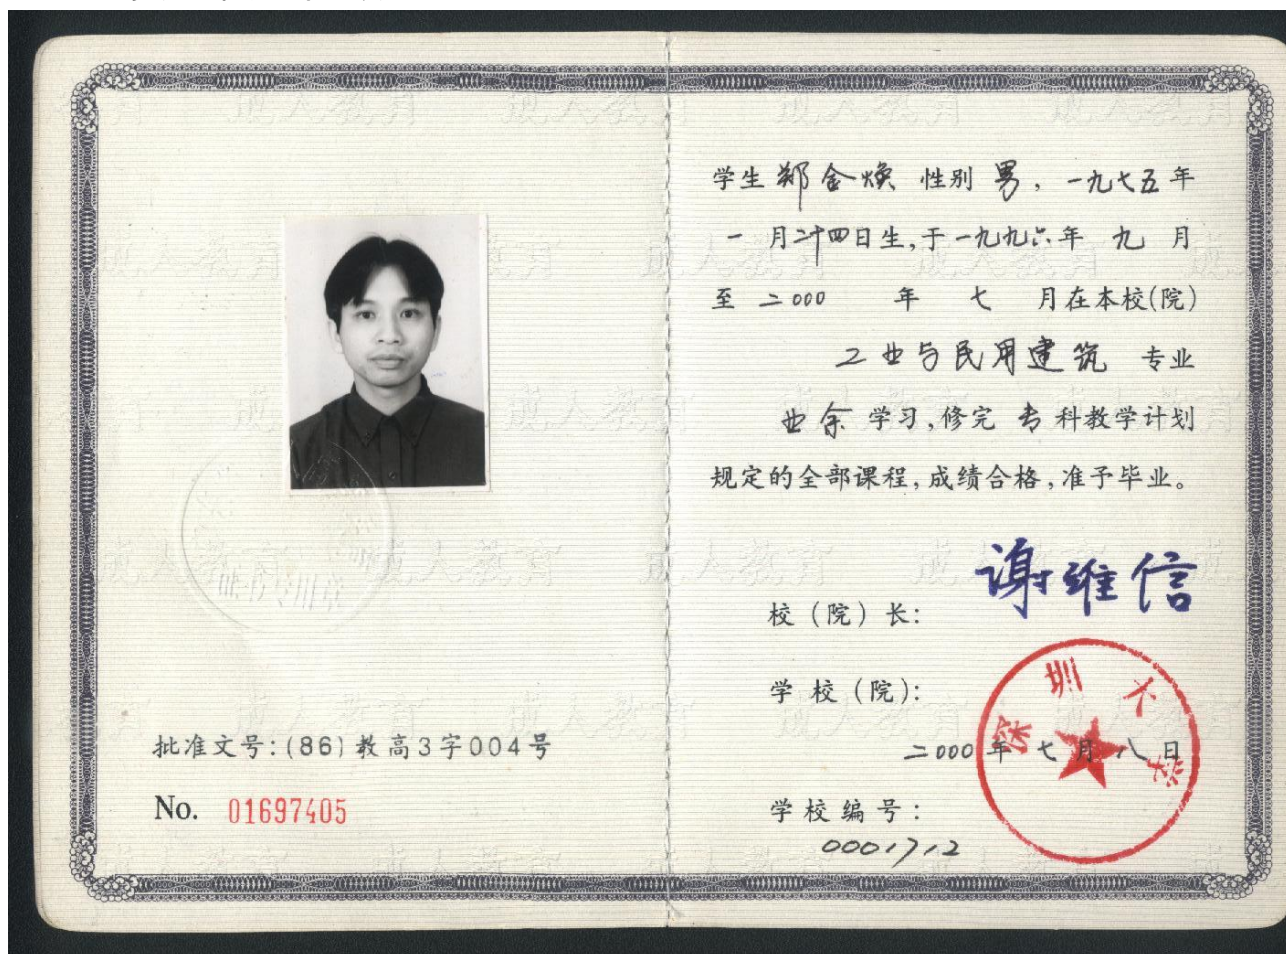 批准文号:(86)教高3字004号
No. 01697405
学生 郑金焕 性别 男,一九七五年
一月二十四日生,于一九九六年 九 月
至 二000 年 七 月在本校(院)
工业与民用建筑 专业
业余 学习,修完 专 科教学计划
规定的全部课程,成绩合格,准予毕业。
校(院)长: 谢维信
学校(院):
深圳大学
二000年七月八日
学校编号:
0001712
成人教育